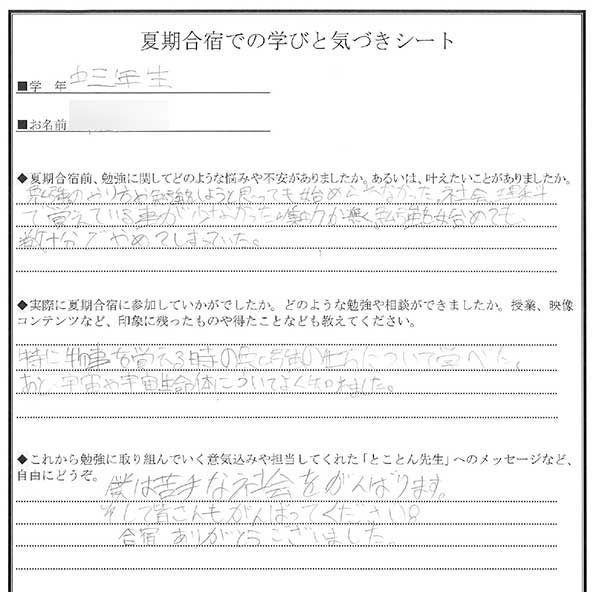 夏期合宿での学びと気づきシート
■学　年 中三年生
■お名前
◆夏期合宿前、勉強に関してどのような悩みや不安がありましたか。あるいは、叶えたいことがありましたか。
勉強のやり方や勉強しようと思っても始められなかった。社会理科
で覚えている事が少なかった 力が無く 始めても、
数十分でやめてしまっていた。
◆実際に夏期合宿に参加していかがでしたか。どのような勉強や相談ができましたか。授業、映像
コンテンツなど、印象に残ったものや得たことなども教えてください。
特に物事を覚える時の について学べた。
あと、宇宙や宇宙生命体についてよく知れました。
◆これから勉強に取り組んでいく意気込みや担当してくれた「とことん先生」へのメッセージなど、
自由にどうぞ。
僕は苦手な社会をがんばります。
そして皆さんもがんばってください。
合宿 ありがとうございました。